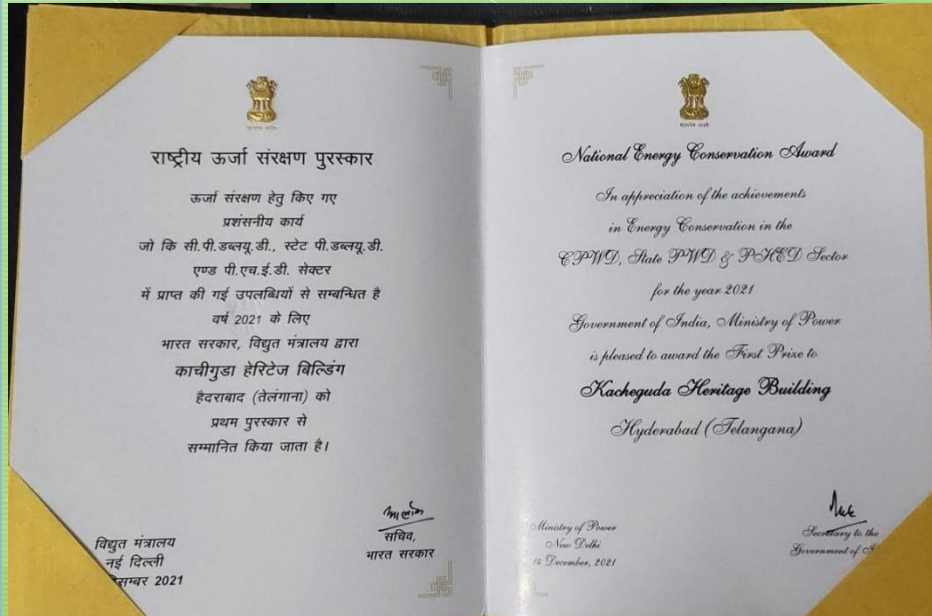 राष्ट्रीय ऊर्जा संरक्षण पुरस्कार
ऊर्जा संरक्षण हेतु किए गए
प्रशंसनीय कार्य
जो कि सी.पी.डब्लयू.डी., स्टेट पी.डब्लयू.डी.
एण्ड पी.एच.ई.डी. सेक्टर
में प्राप्त की गई उपलब्धियों से सम्बन्धित है
वर्ष 2021 के लिए
भारत सरकार, विद्युत मंत्रालय द्वारा
काचीगुडा हेरिटेज बिल्डिंग
हैदराबाद (तेलंगाना) को
प्रथम पुरस्कार से
सम्मानित किया जाता है।
विद्युत मंत्रालय
नई दिल्ली
2021
सचिव,
भारत सरकार
National Energy Conservation Award
In appreciation of the achievements
in Energy Conservation in the
CPWD, State PWD & PHED Sector
for the year 2021
Government of India, Ministry of Power
is pleased to award the First Prize to
Kacheguda Heritage Building
Hyderabad (Telangana)
Ministry of Power
New Delhi
14 December, 2021
Secretary to the
Government of